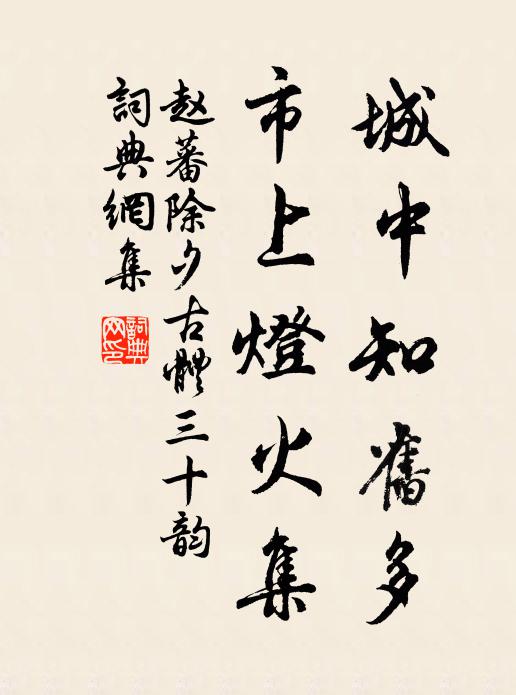 城中知舊多
市上燈火集
赵蕃除夕古體三十韵
詞典網集
詞典
网印